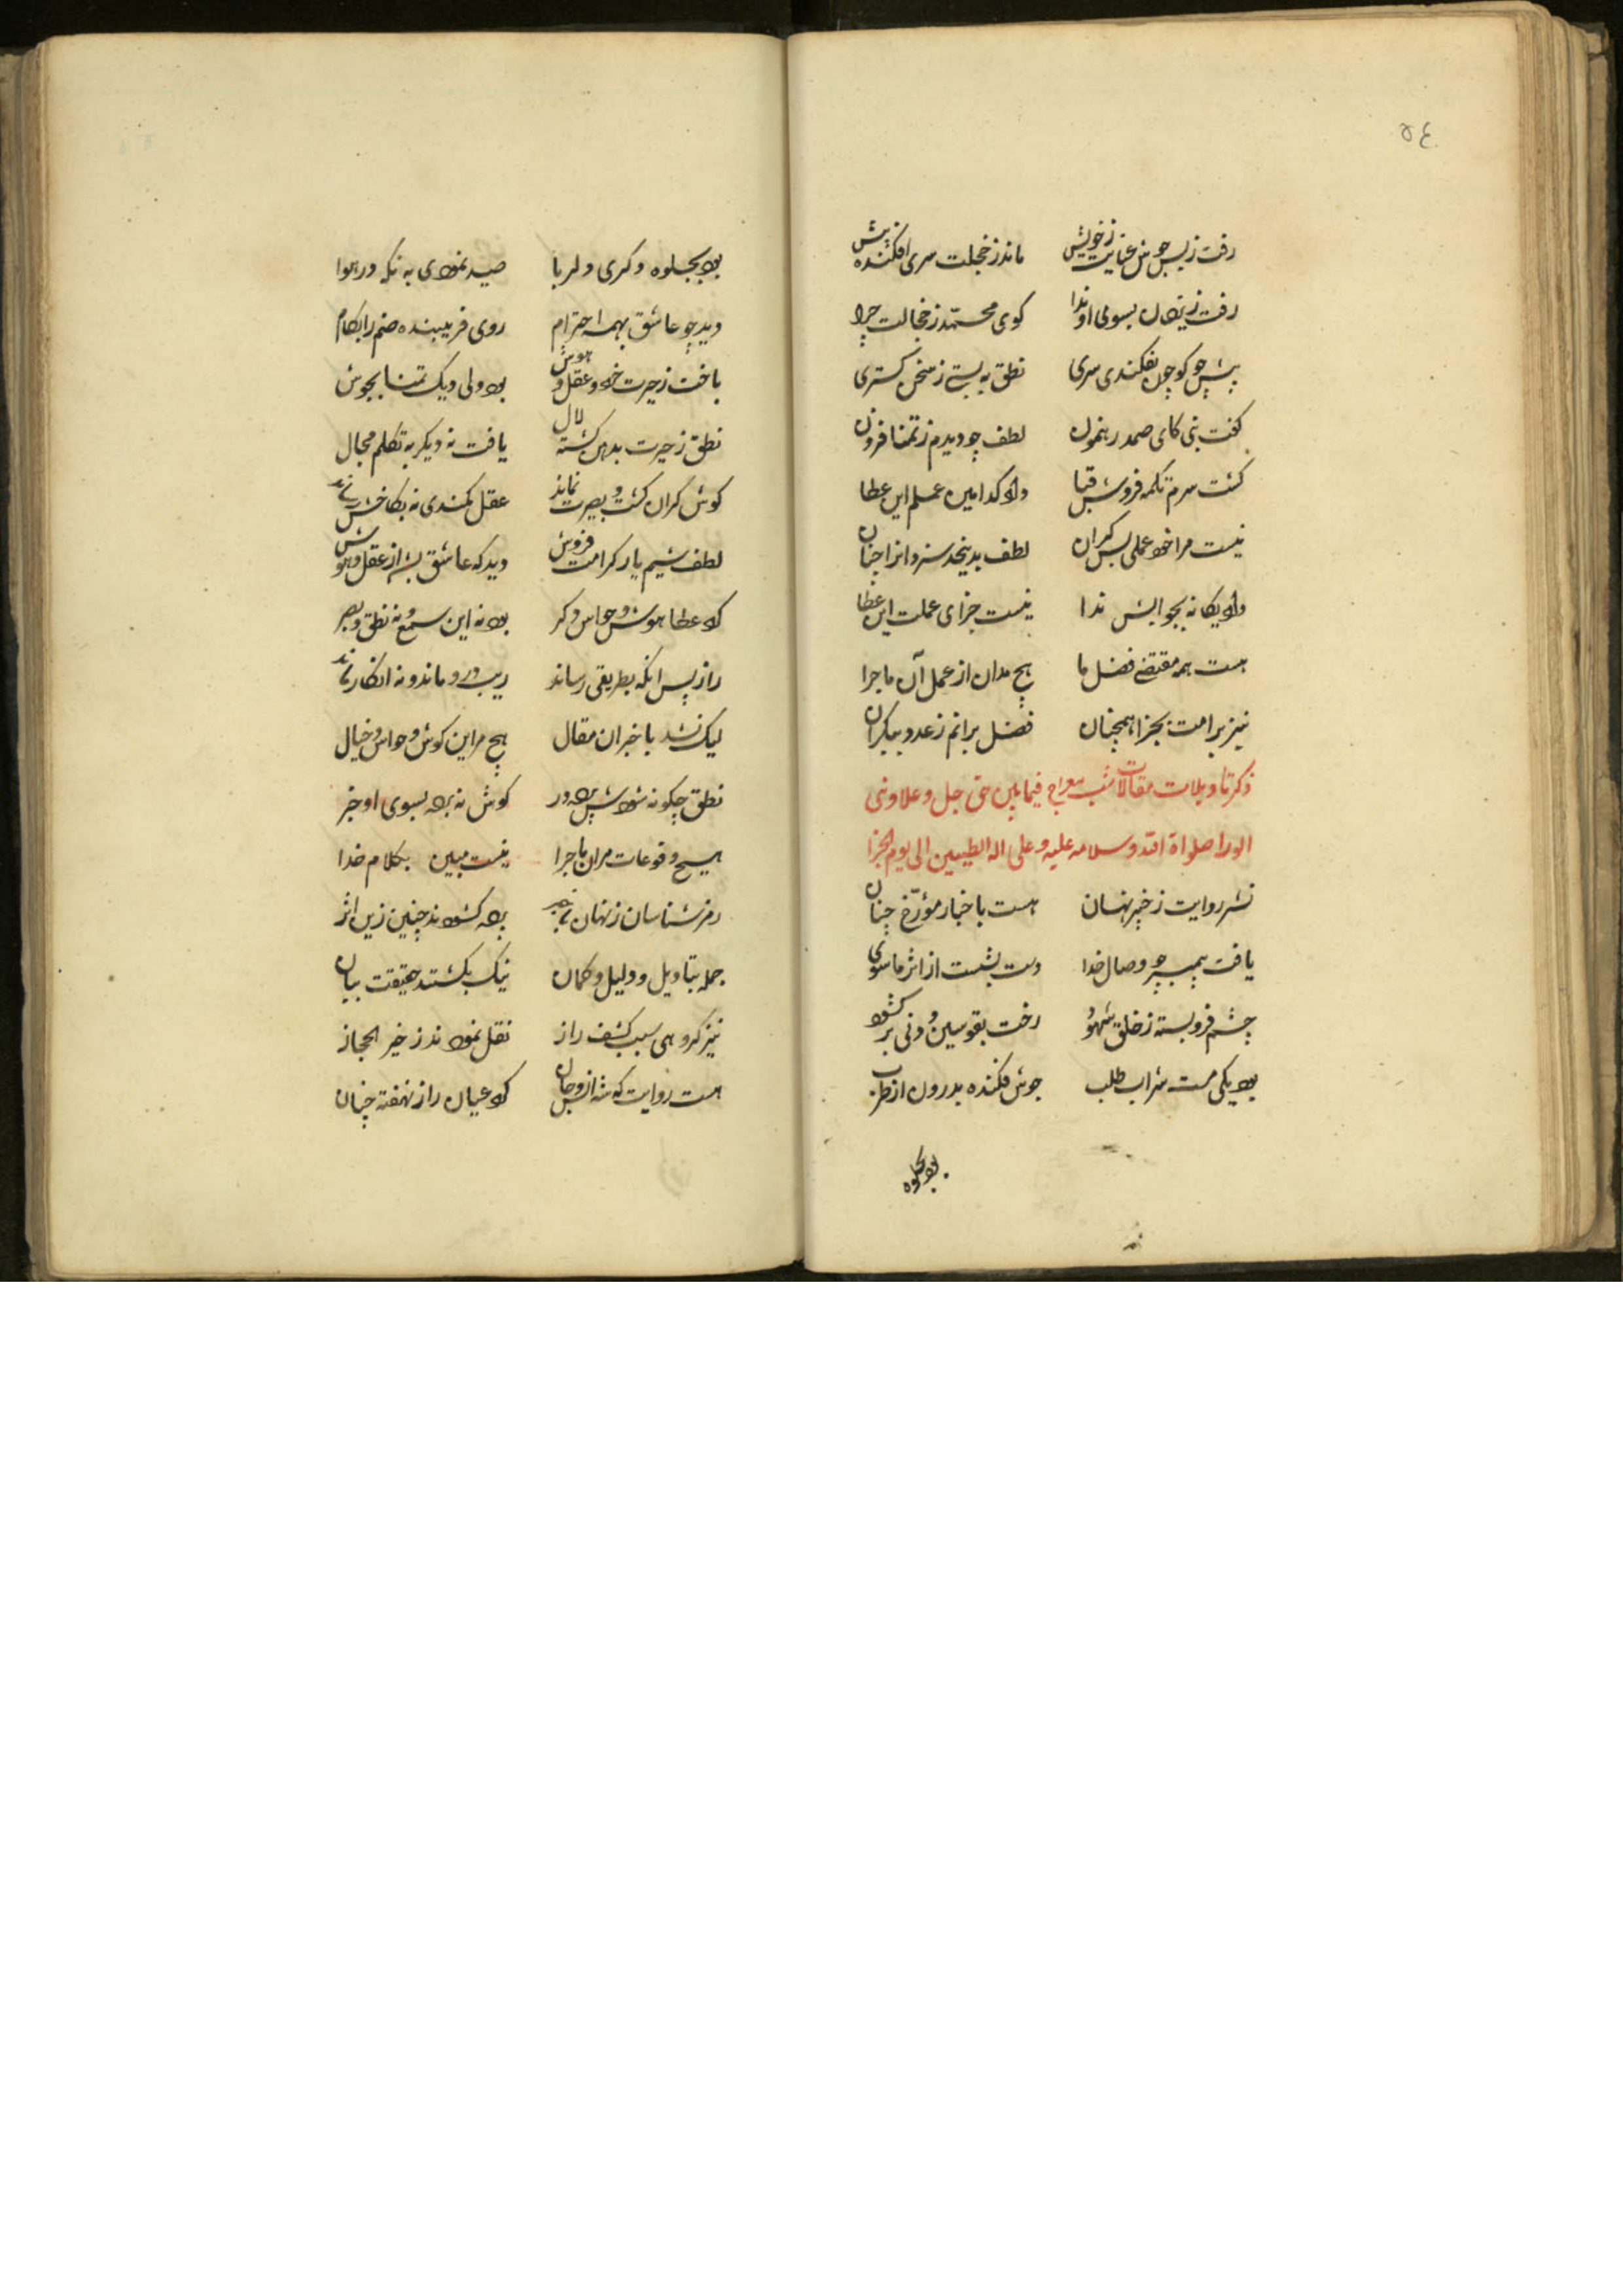 ٥٤
رفت ز بس جوش عنایت ز خویش ماند ز خجلت سری افکنده پیش
رفت ز یزدان بسوی او ندا کوی محمد ز خجالت چرا
پیش چو کوچه بفکندی سری نطق به بستی ز سخن کستری
کفت نبی کای صمد رهنمون لطف چو دیدم ز تمنا فزون
کشت سرم تکمه فروش قبا داد کدامین عملم این عطا
نیست مرا خود عملی بس کران لطف بدینحد سزد انرا چنان
داد یکانه بجوابش ندا نیست جزای عملت این عطا
هست همه مقتضی فضل ما هیچ مدان از عمل آن ماجرا
نیز بر امت بجزا همچنان فضل برانم ز عدد بیکران
ذکر تاویلات مقالات شب معراج فیما بین حق جل و علا و نبی
الورا صلواة الله و سلامه علیه و علی اله الطیبین الی یوم الجزا
نشر روایت ز خبر نهسان هست باخبار مؤرخ چنان
یافت پیمبر چو وصال خدا دست بشست از اثر ماسوی
چشم فروبسته ز خلق شهود رخت بقوسین و دنی بر کشود
بود یکی مست شراب طلب جوش فکنده بدرون از طرب
بود بجلوه
بود بجلوه دکری دلربا صید نمودی به نکه در هوا
دید چو عاشق بهمه احترام روی فریبنده صنم را بکام
باخت ز حیرت خود و عقل و هوش بود ولی دیک تمنا بجوش
نطق ز حیرت بدهن کشته لال یافت نه دیکر به تکلم مجال
کوش کران کشت و بصیرت نماند عقل کمندی نه بکاخش رساند
لطف شیم یار کرامت فروش دید که عاشق بشد از عقل و هوش
کرد عطا هوش و حواس دکر بود نه این سمع و نه نطق و بصر
راز پس انکه بطریقی رساند ریب در و ماند و نه انکار ماند
لیک نشد باخبر ان مقال هیچ مر این کوش و حواس و خیال
نطق چکونه شود پرده در کوش نه برد بسوی او خبر
هیچ وقوعات مر ان ماجرا نیست مبین بکلام خدا
رمز شناسان ز نهان خبر پرده کشودند چنین زین اثر
جمله بتاویل و دلیل و کمان نیک بکشتند حقیقت بیان
نیز کروهی سبب کشف راز نقل نمودند ز خیر الحجاز
هست روایت که شه انس و جان کرد عیان راز نهفته چنان